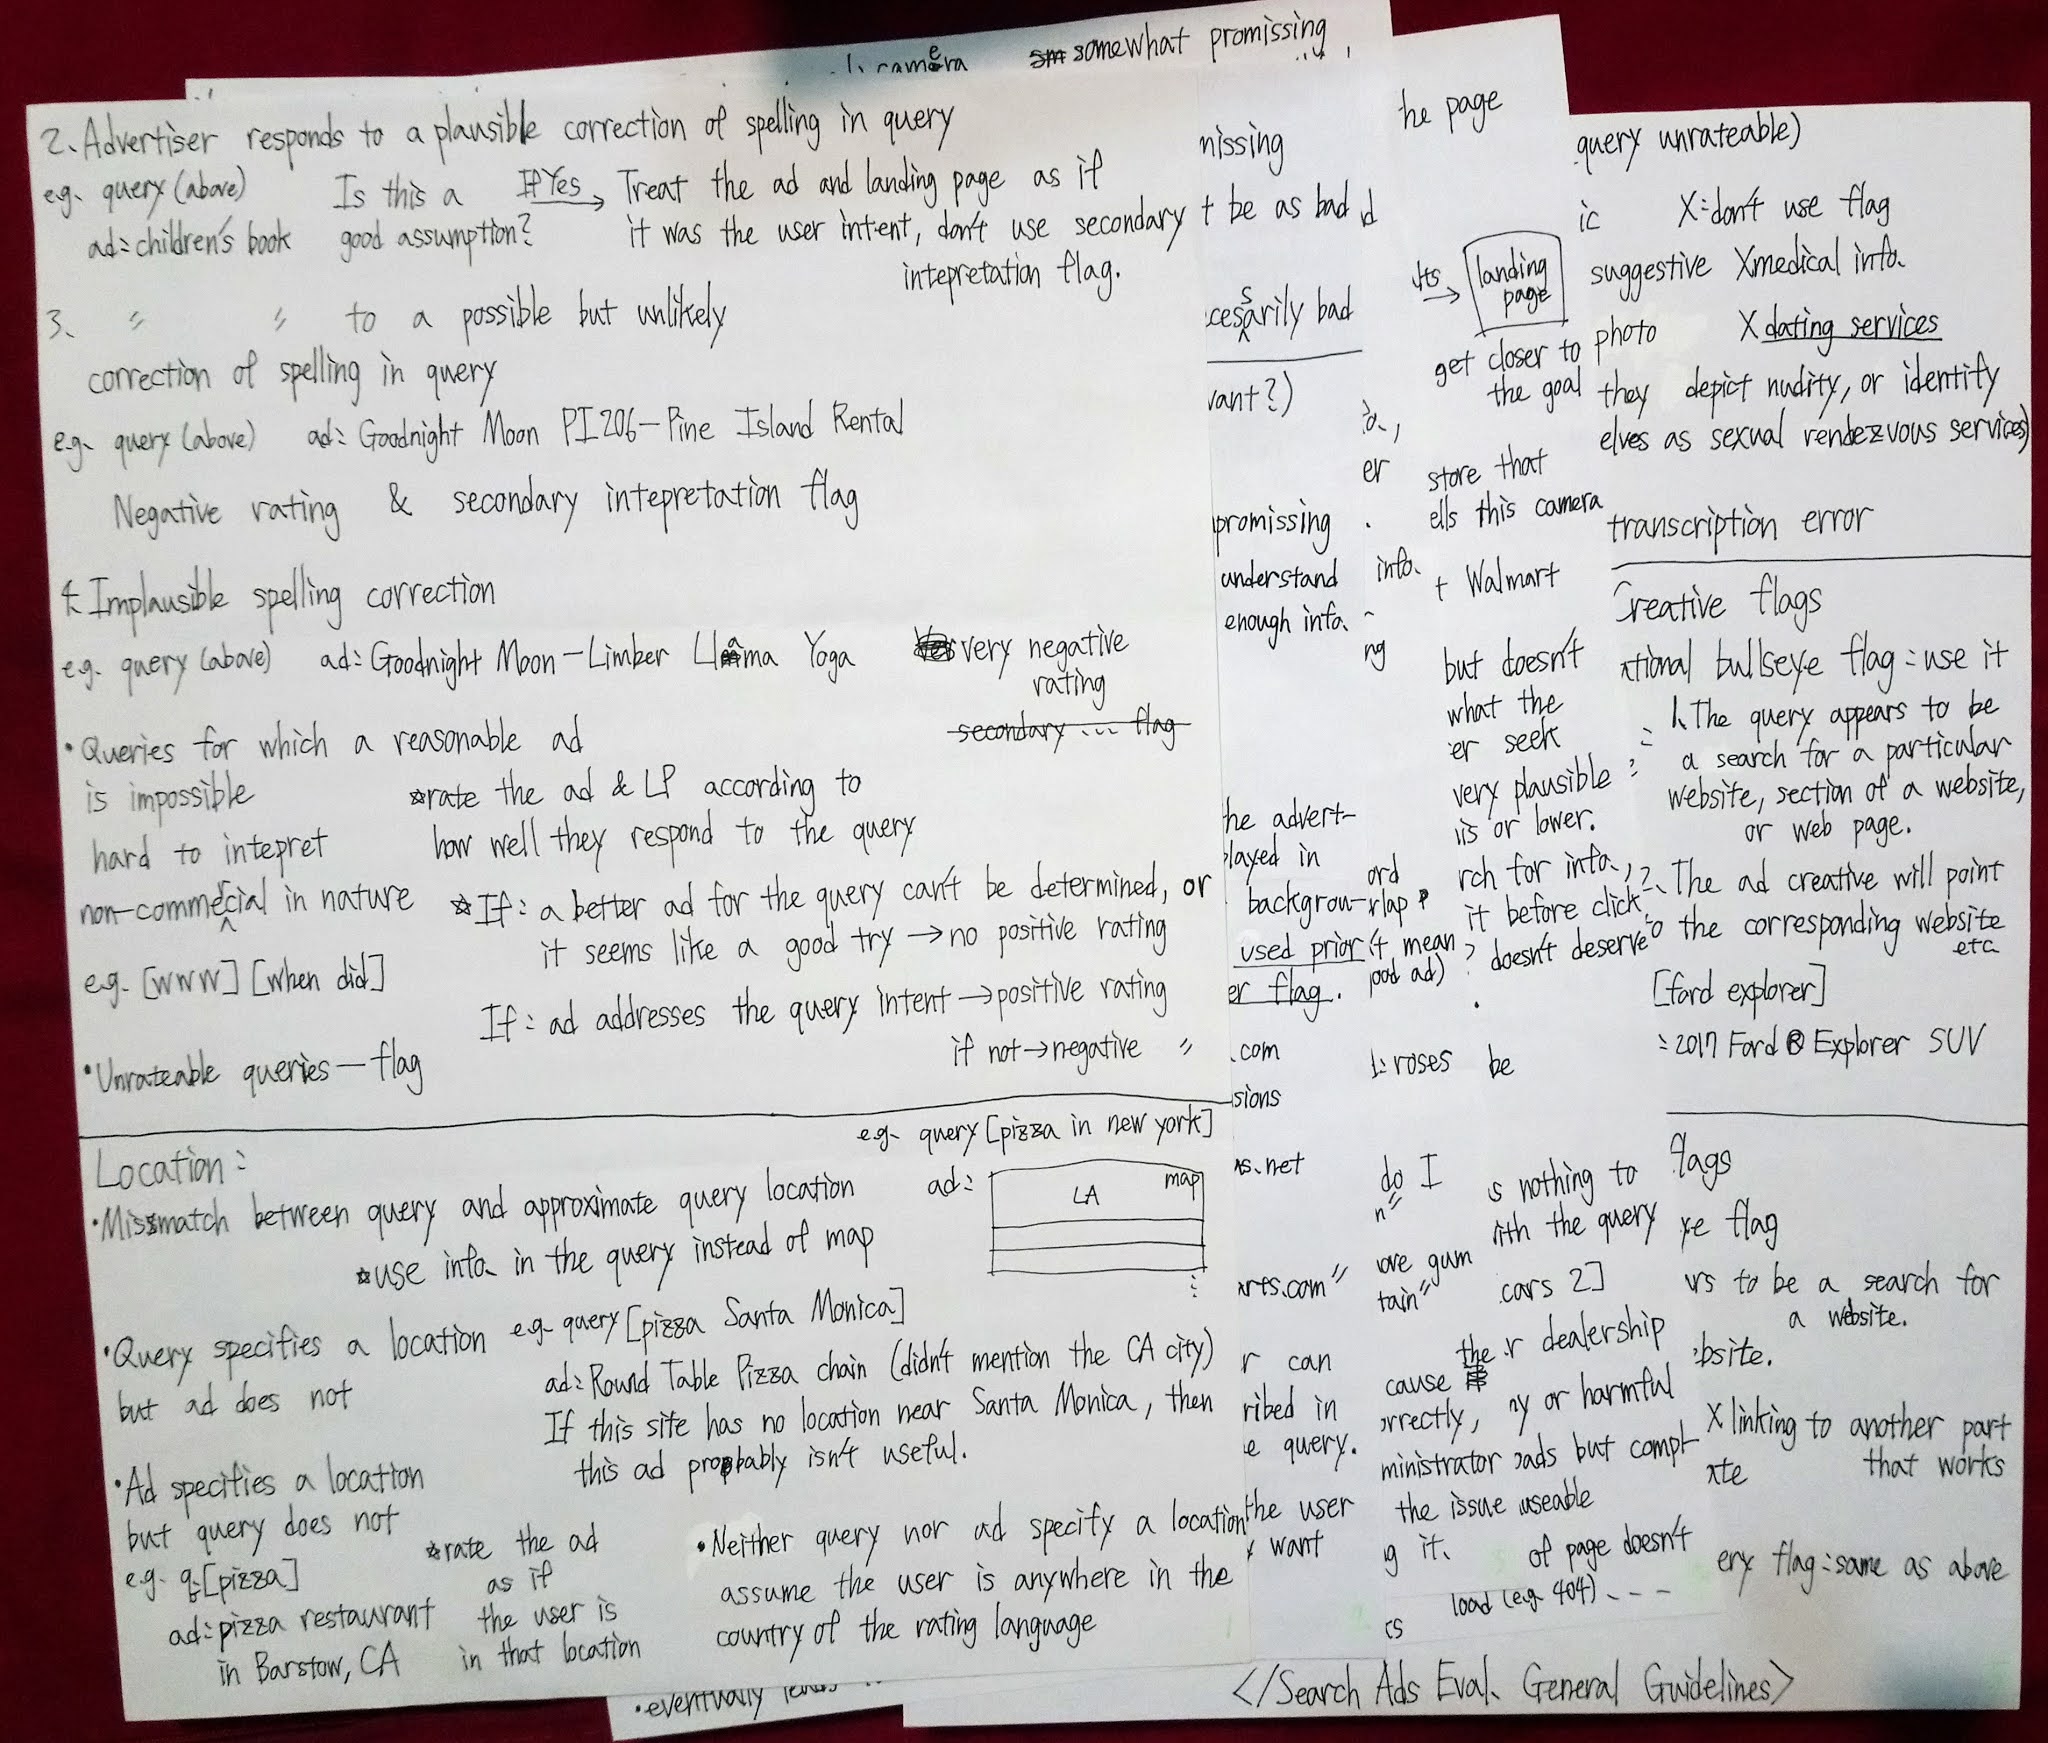 2. Advertiser responds to a plausible correction of spelling in query
e.g. query (above)
ad: children's book
Is this a
good assumption?
If Yes →
Treat the ad and landing page as if
it was the user intent, don't use secondary
intepretation flag.
3. 〃 〃 to a possible but unlikely
correction of spelling in query
e.g. query (above) ad: Goodnight Moon PI206-Pine Island Rental
Negative rating & secondary intepretation flag
4. Implausible spelling correction
e.g. query (above) ad: Goodnight Moon-Limber Llama Yoga
very negative
rating
secondary ... flag
• Queries for which a reasonable ad
is impossible
hard to intepret
non-commercial in nature
e.g. [www] [when did]
☆rate the ad & LP according to
how well they respond to the query
☆If: a better ad for the query can't be determined, or
it seems like a good try → no positive rating
If: ad addresses the query intent → positive rating
if not → negative 〃
• Unrateable queries — flag
Location:
• Missmatch between query and approximate query location
☆use info. in the query instead of map
e.g. query [pizza in new york]
ad:
LA
map
• Query specifies a location
but ad does not
e.g. query [pizza Santa Monica]
ad: Round Table Pizza chain (didn't mention the CA city)
If this site has no location near Santa Monica, then
this ad probably isn't useful.
• Ad specifies a location
but query does not
e.g. q:[pizza]
ad: pizza restaurant
in Barstow, CA
☆rate the ad
as if
the user is
in that location
• Neither query nor ad specify a location
assume the user is anywhere in the
country of the rating language
camera somewhat promissing
nissing
t be as bad
cessarily bad
vant?)
promissing
understand
enough info.
he advert-
layed in
backgrou-
used prior
er flag.
.com
sions
ns.net
arts.com"
r can
ribed in
e query.
the user
want
• eventually
er
info.
ng
ord
rlap
t mean
ood ad)
roses
do I
n"
ove gum
tain"
cause the
orrectly,
ministrator
the issue
g it.
cs
he page
→ landing
page
get closer to
the goal
store that
ells this camera
t Walmart
but doesn't
what the
er seek
very plausible
is or lower.
rch for info.,
it before click
doesn't deserve
be
s nothing to
ith the query
cars 2]
r dealership
ny or harmful
oads but compl-
useable
of page doesn't
load (e.g. 404). - -
query unrateable)
ic X: don't use flag
suggestive X medical info.
photo X dating services
they depict nudity, or identify
elves as sexual rendezvous services)
transcription error
Creative flags
ational bullseye flag: use it
1. The query appears to be
a search for a particular
website, section of a website,
or web page.
2. The ad creative will point
o the corresponding website
etc.
[ford explorer]
: 2017 Ford ® Explorer SUV
flags
ye flag
rs to be a search for
a website.
bsite.
X linking to another part
ate that works
ery flag: same as above
</Search Ads Eval. General Guidelines>